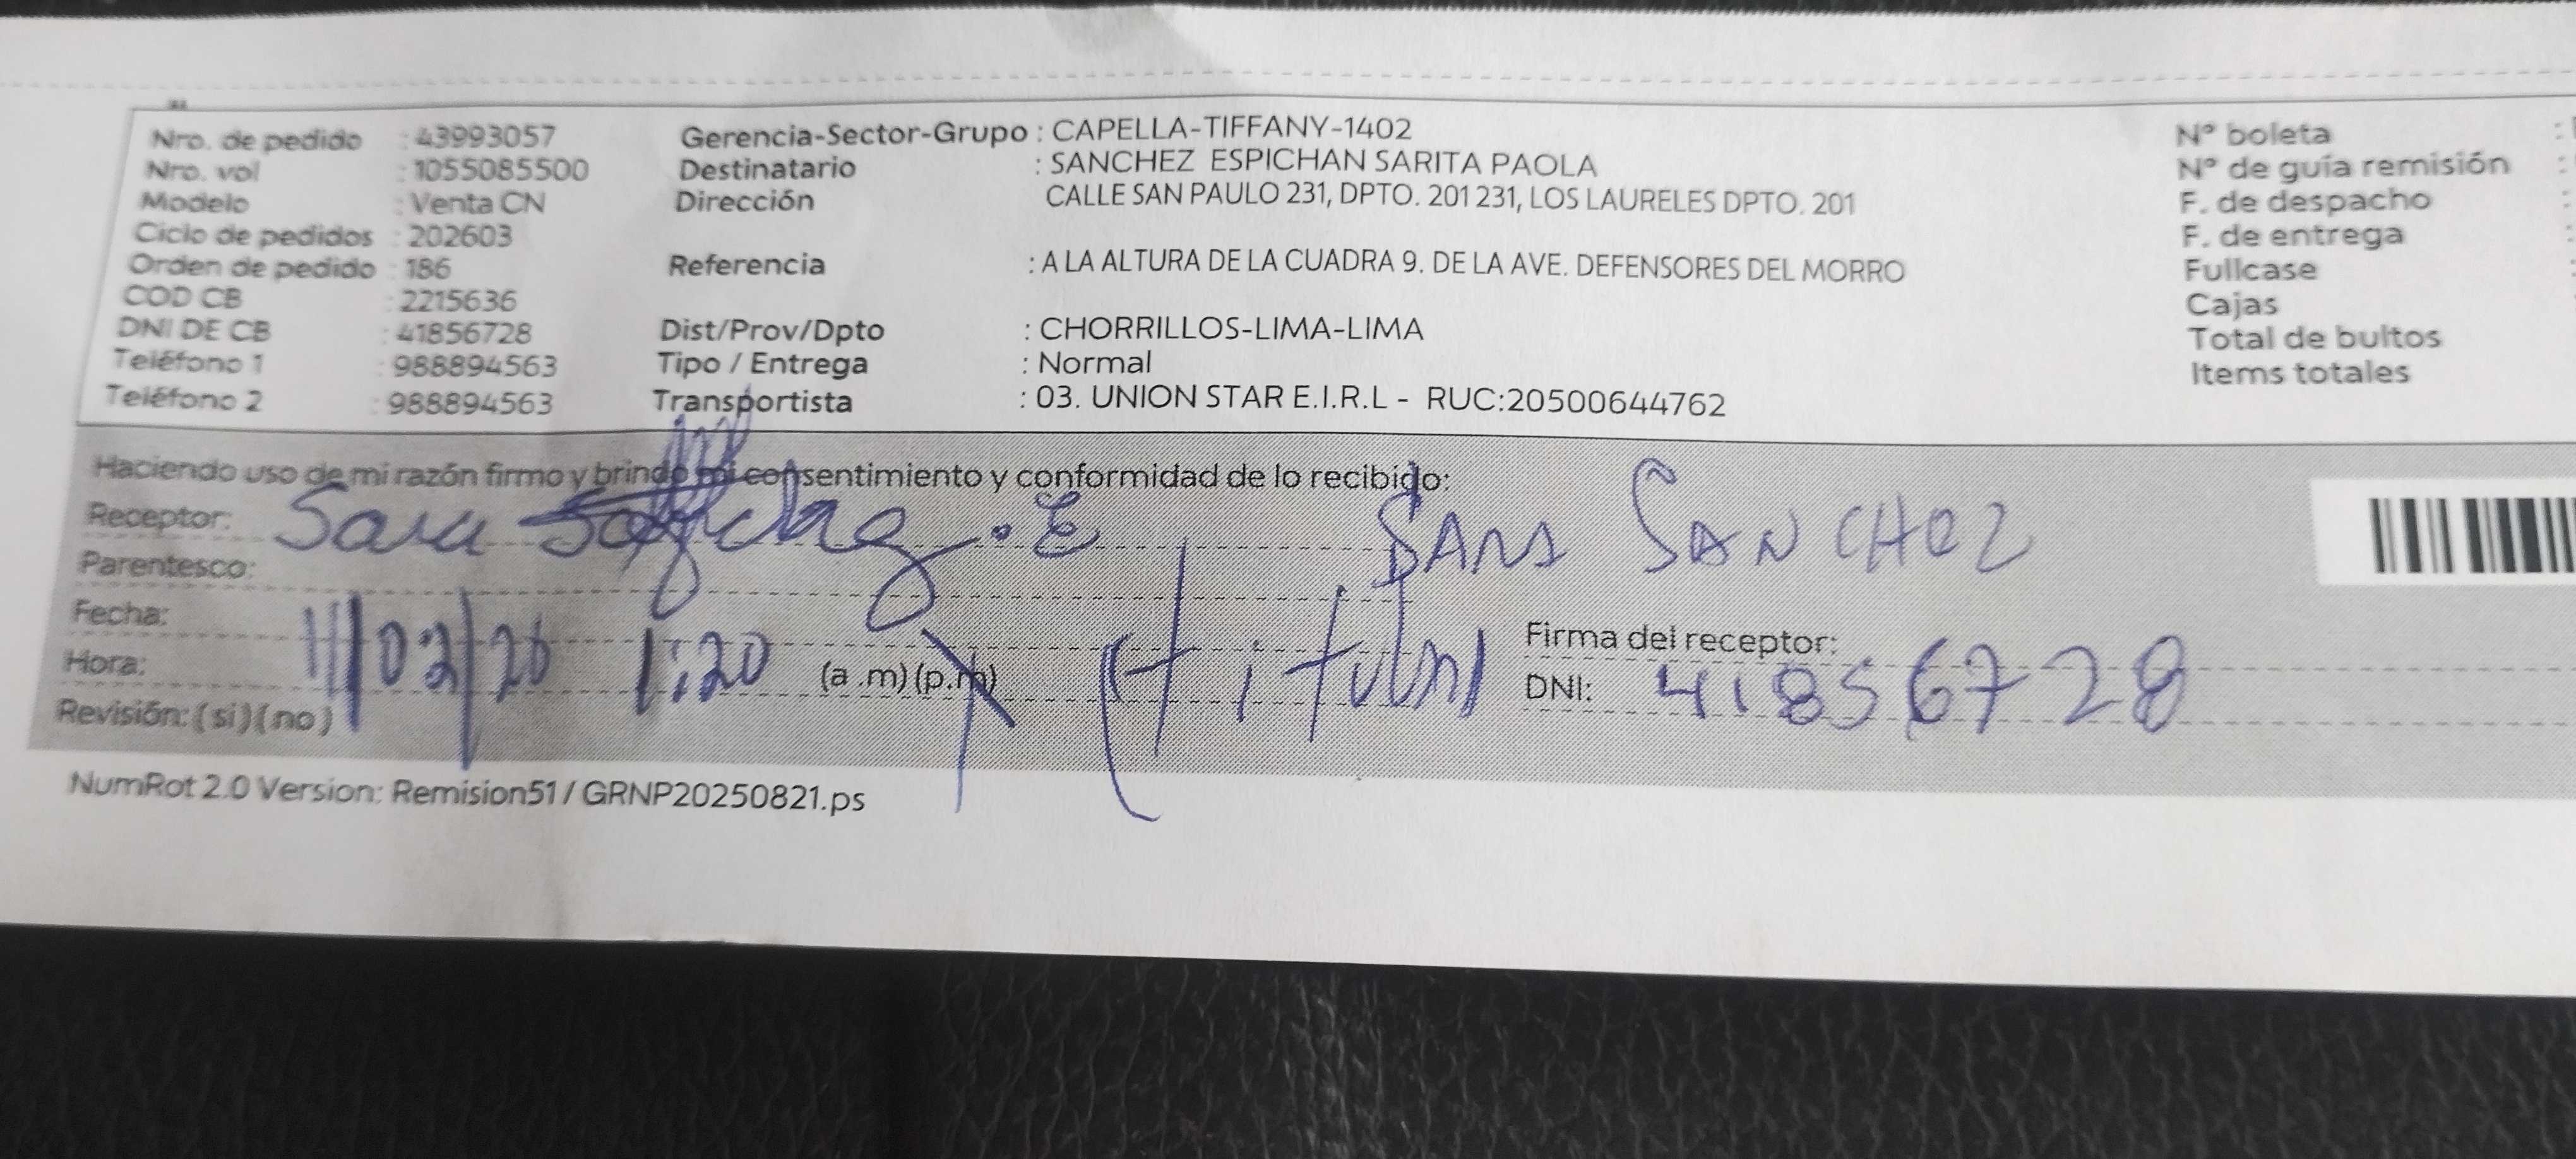 Nro. de pedido : 43993057 Gerencia-Sector-Grupo : CAPELLA-TIFFANY-1402 N° boleta :
Nro. vol : 1055085500 Destinatario : SANCHEZ ESPICHAN SARITA PAOLA N° de guía remisión :
Modelo : Venta CN Dirección CALLE SAN PAULO 231, DPTO. 201 231, LOS LAURELES DPTO. 201 F. de despacho :
Ciclo de pedidos : 202603 F. de entrega
Orden de pedido : 186 Referencia : A LA ALTURA DE LA CUADRA 9. DE LA AVE. DEFENSORES DEL MORRO Fullcase
COD CB : 2215636 Cajas
DNI DE CB : 41856728 Dist/Prov/Dpto : CHORRILLOS-LIMA-LIMA Total de bultos
Teléfono 1 : 988894563 Tipo / Entrega : Normal Items totales
Teléfono 2 : 988894563 Transportista : 03. UNION STAR E.I.R.L - RUC:20500644762
Haciendo uso de mi razón firmo y brindo mi consentimiento y conformidad de lo recibido:
Receptor: Sara . E SARA SANCHEZ
Parentesco:
Fecha: 11/02/26 Firma del receptor:
Hora: 1:20 (a .m) (p.m) (titular) DNI: 41856728
Revisión: ( si ) ( no )
NumRot 2.0 Version: Remision51 / GRNP20250821.ps